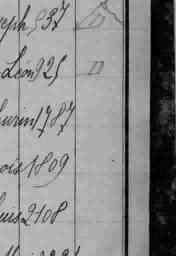 eph 537
Léon 925
urin 1787
ois 1809
uis 2108